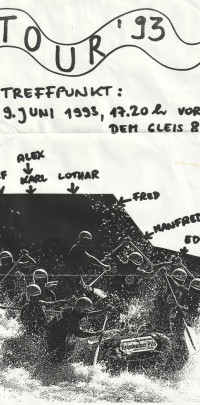 TOUR '93
TREFFPUNKT:
9. JUNI 1993, 17.20 h VOR
DEM GLEIS 8
ALEX
F KARL LOTHAR
FRED
MANFRED
ED